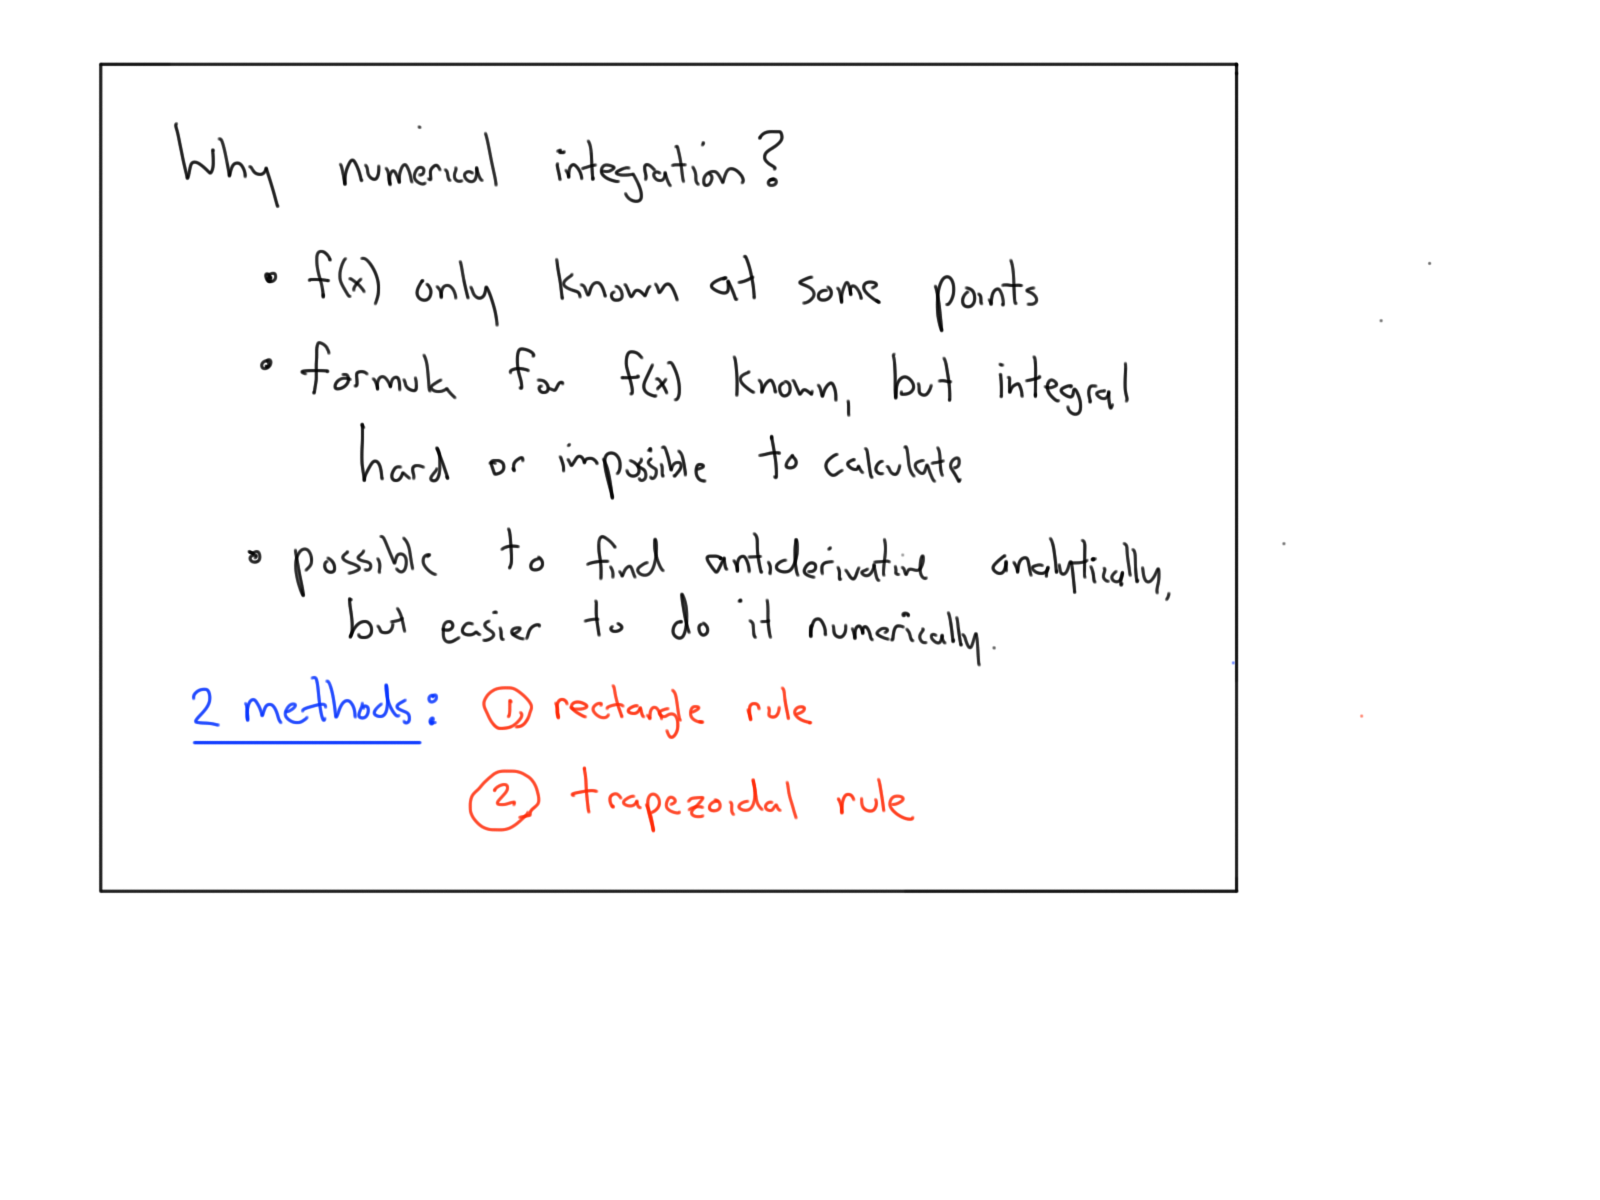 Why numerical integration?
• f(x) only known at some points
• formula for f(x) known, but integral
hard or impossible to calculate
• possible to find antiderivative analytically,
but easier to do it numerically.
2 methods: ① rectangle rule
② trapezoidal rule